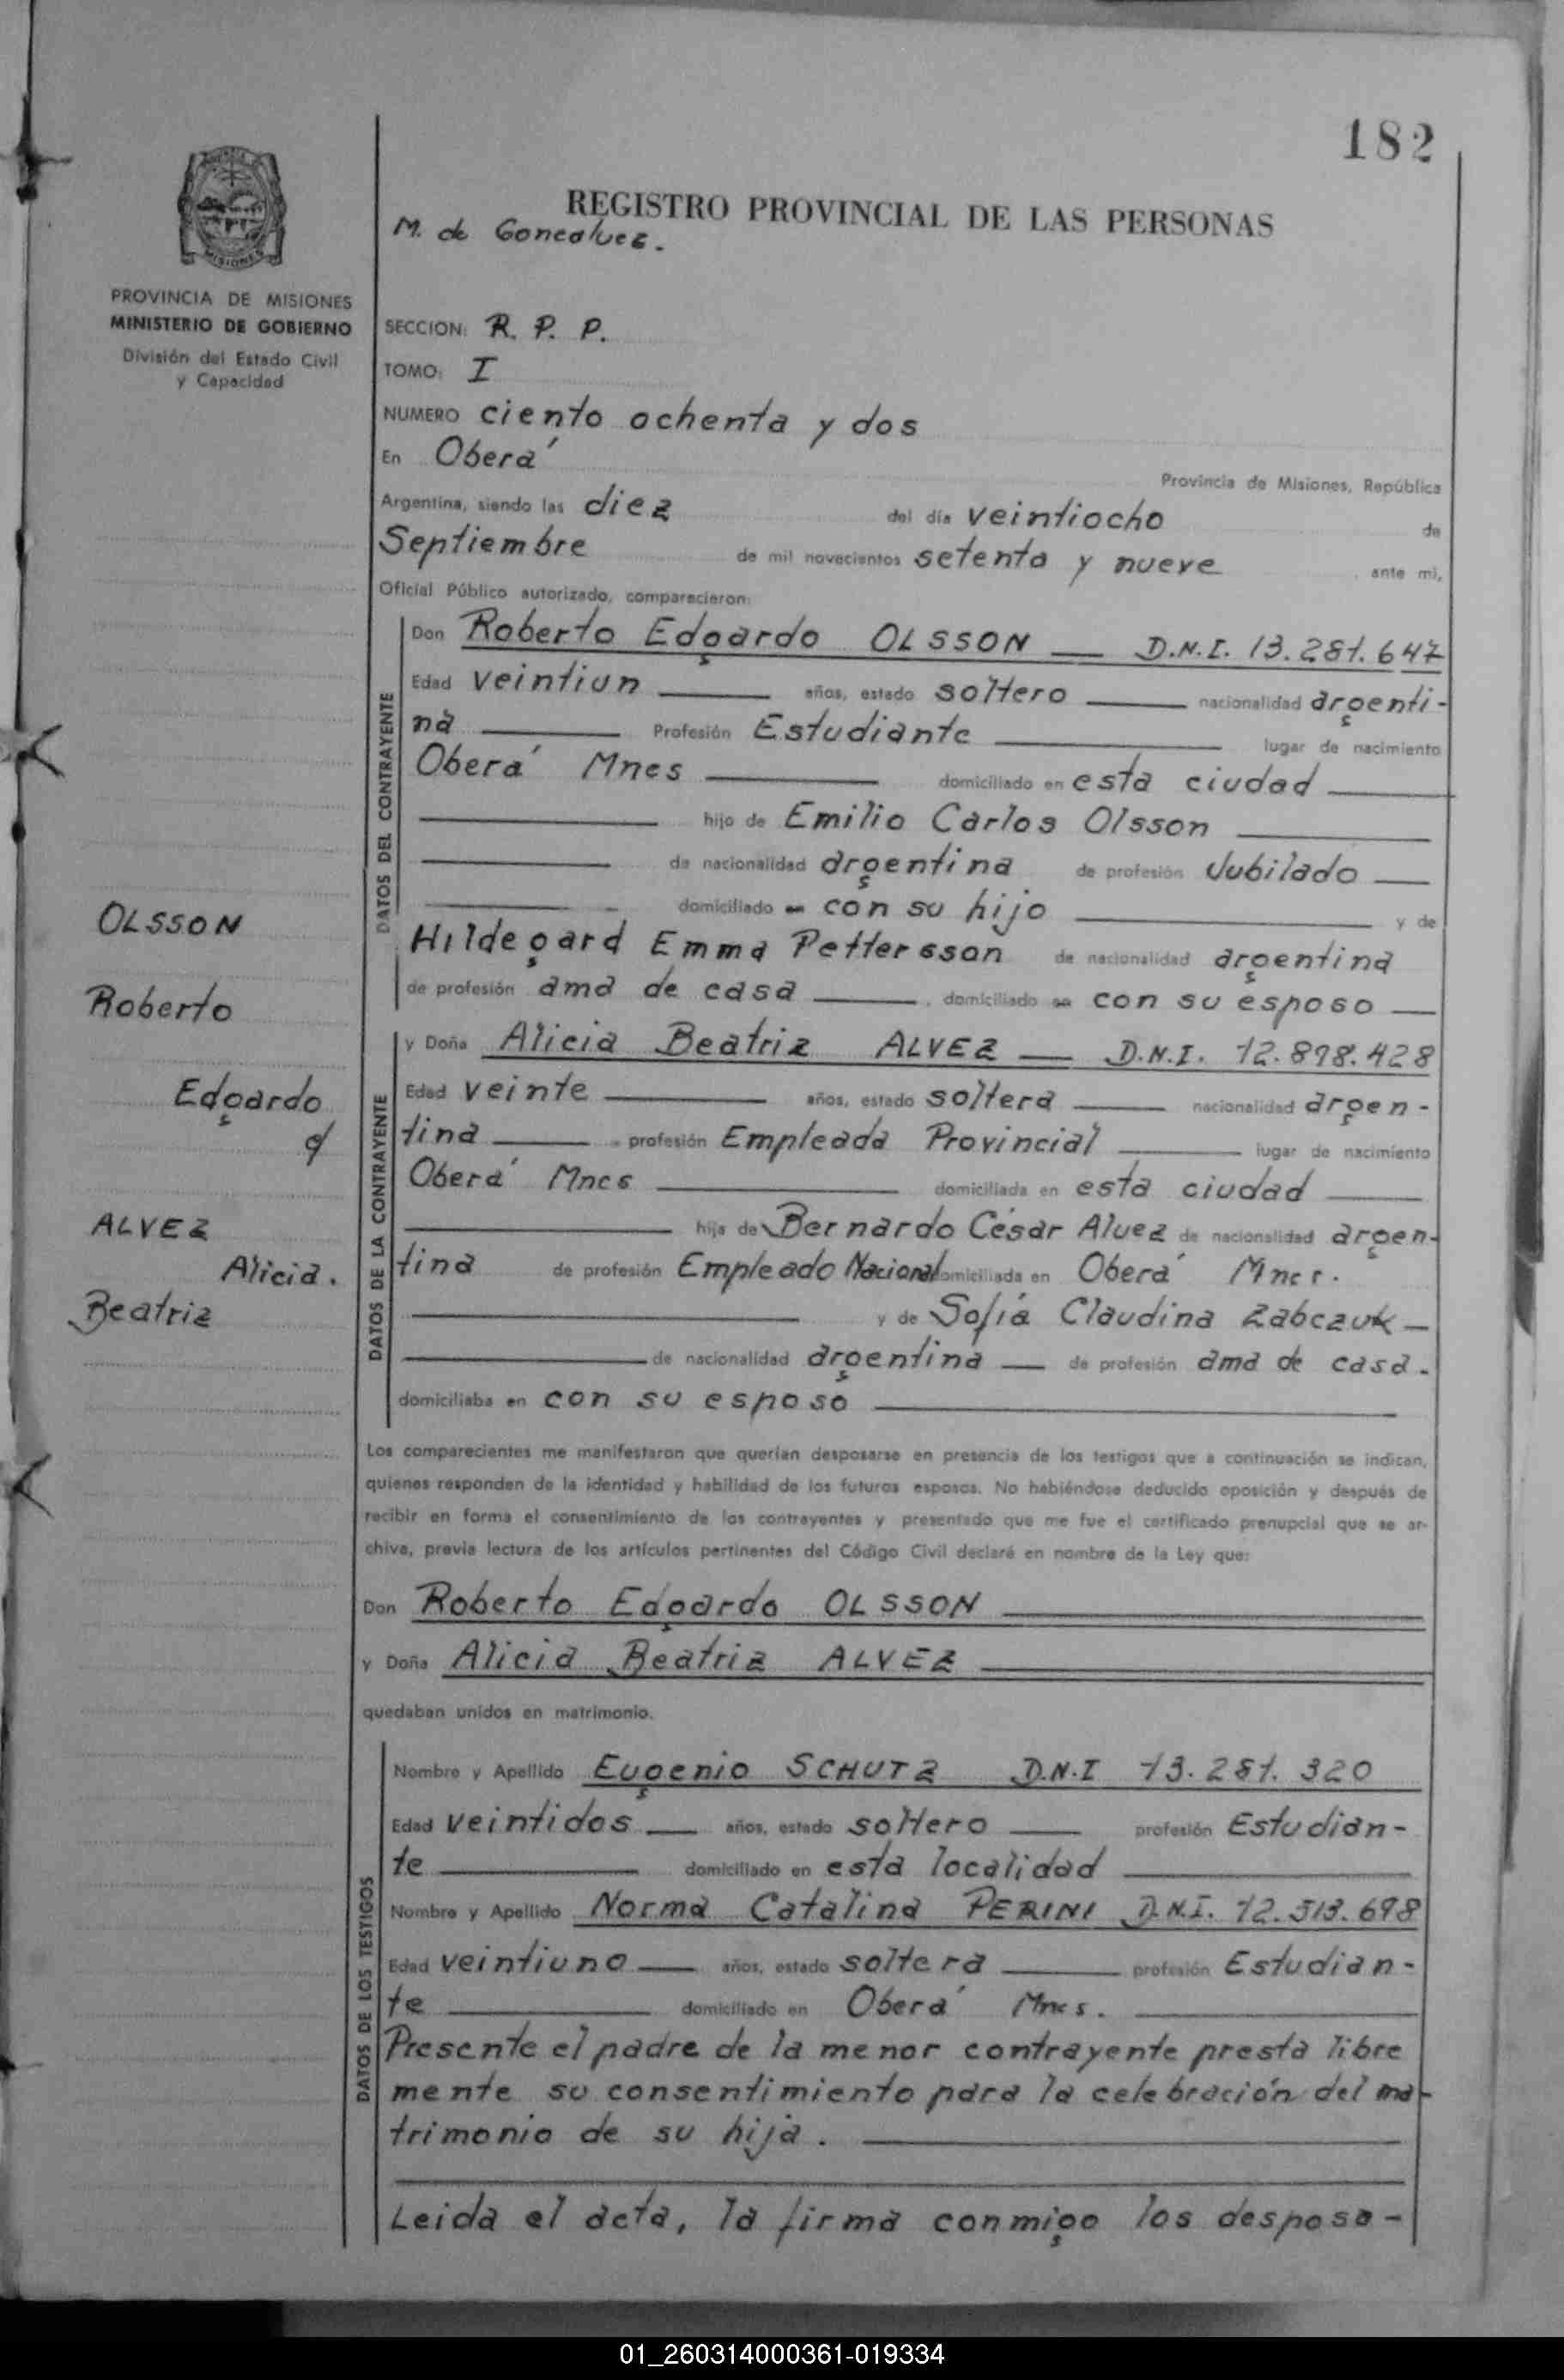 182
REGISTRO PROVINCIAL DE LAS PERSONAS
M. de Goncalvez.
PROVINCIA DE MISIONES
MINISTERIO DE GOBIERNO
División del Estado Civil
y Capacidad
SECCION: R. P. P.
TOMO: I
NUMERO ciento ochenta y dos
En Oberá Provincia de Misiones, República
Argentina, siendo las diez del día veintiocho de
Septiembre de mil novecientos setenta y nueve ante mi,
Oficial Público autorizado, comparecieron:
DATOS DEL CONTRAYENTE
Don Roberto Edgardo OLSSON D.N.I. 13.281.647
Edad veintiun años, estado soltero nacionalidad argenti-
na Profesión Estudiante lugar de nacimiento
Oberá Mnes domiciliado en esta ciudad
hijo de Emilio Carlos Olsson
de nacionalidad argentina de profesión Jubilado
domiciliado con su hijo y de
Hildegard Emma Pettersson de nacionalidad argentina
de profesión ama de casa domiciliado con su esposo
OLSSON
Roberto
Edgardo
c/
ALVEZ
Alicia.
Beatriz
DATOS DE LA CONTRAYENTE
y Doña Alicia Beatriz ALVEZ D.N.I. 12.898.428
Edad veinte años, estado soltera nacionalidad argen-
tina profesión Empleada Provincial lugar de nacimiento
Oberá Mnes domiciliada en esta ciudad
hija de Bernardo César Alvez de nacionalidad argen-
tina de profesión Empleado Nacional domiciliada en Oberá Mnes.
y de Sofía Claudina Zabczuk
de nacionalidad argentina de profesión ama de casa.
domiciliaba en con su esposo
Los comparecientes me manifestaron que querían desposarse en presencia de los testigos que a continuación se indican,
quienes responden de la identidad y habilidad de los futuros esposos. No habiéndose deducido oposición y después de
recibir en forma el consentimiento de los contrayentes y presentado que me fue el certificado prenupcial que se ar-
chiva, previa lectura de los artículos pertinentes del Código Civil declaré en nombre de la Ley que:
Don Roberto Edgardo OLSSON
y Doña Alicia Beatriz ALVEZ
quedaban unidos en matrimonio.
DATOS DE LOS TESTIGOS
Nombre y Apellido Eugenio SCHUTZ D.N.I 13.281.320
Edad veintidos años, estado soltero profesión Estudian-
te domiciliado en esta localidad
Nombre y Apellido Norma Catalina PERINI D.N.I. 12.513.698
Edad veintiuno años, estado soltera profesión Estudian-
te domiciliado en Oberá Mnes.
Presente el padre de la menor contrayente presta libre
mente su consentimiento para la celebración del ma-
trimonio de su hija.
Leida el acta, la firma conmigo los desposa-
01_260314000361-019334